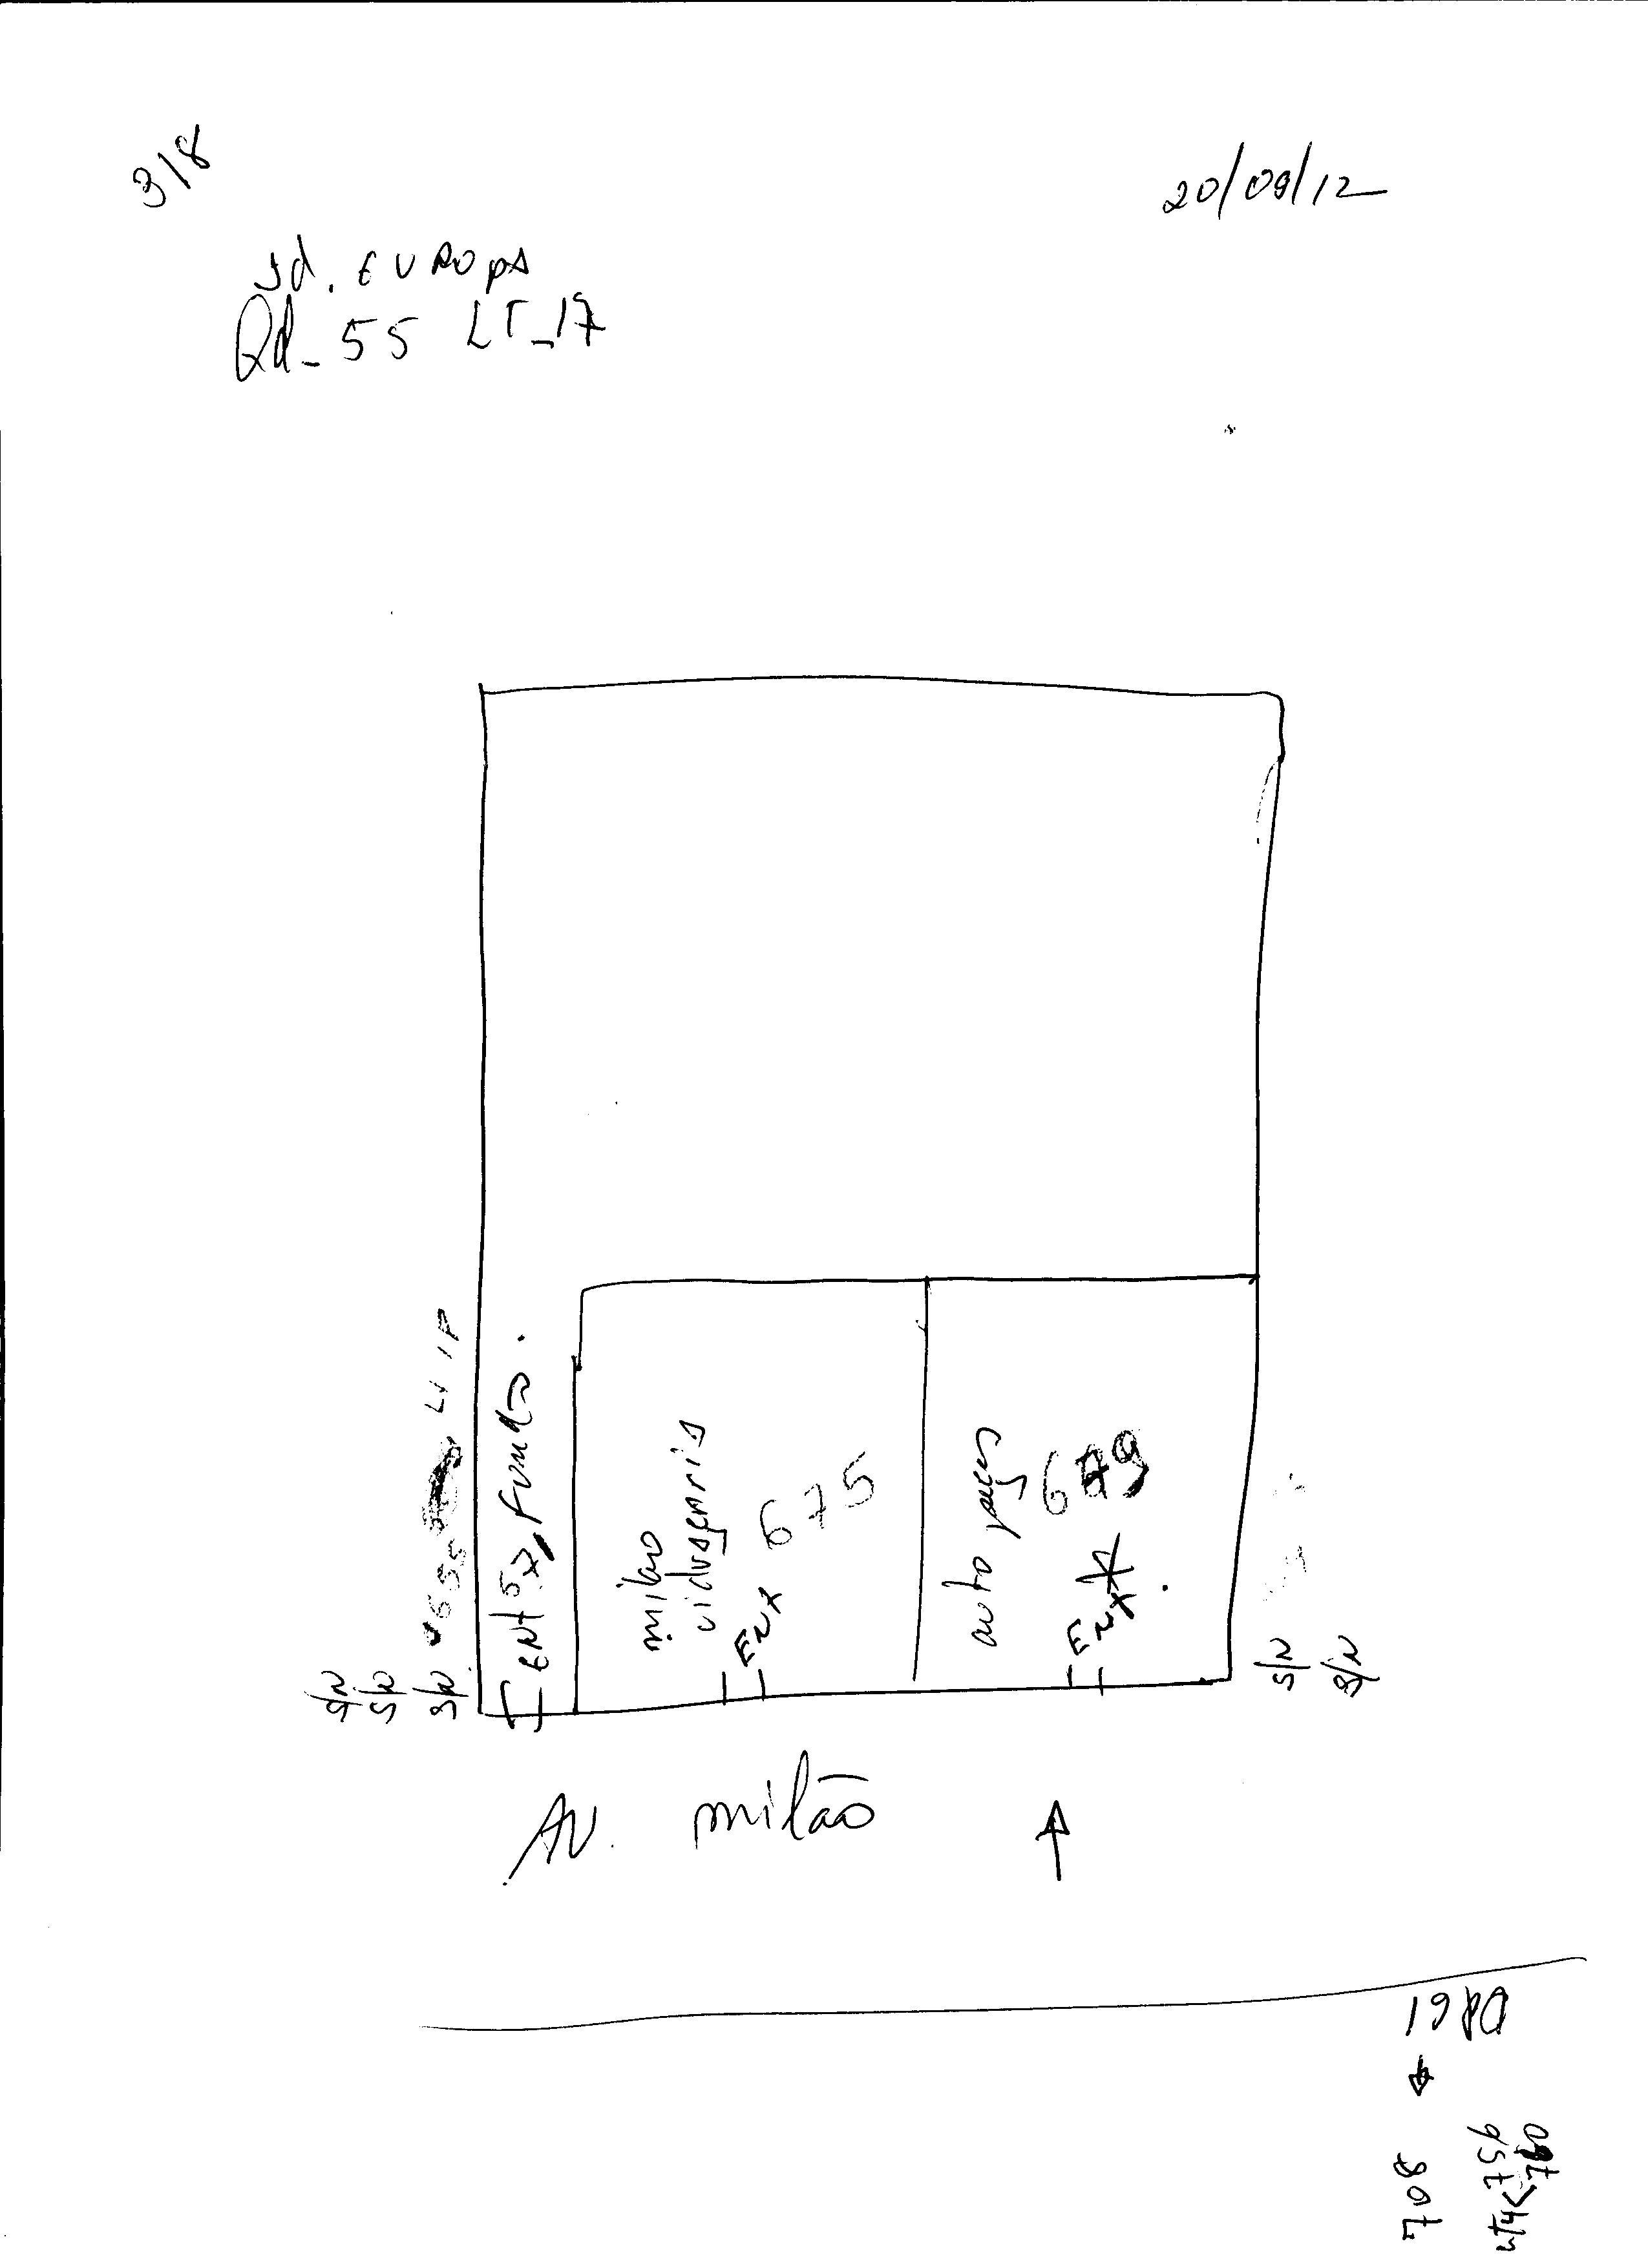 3/8
20/09/12
Jd. EUROPA
Qd_ 55 LT_17
S/N
S/N
S/N
655
ENT. P/ Fundo.
milão
vidraçaria
675
ENT
auto peças
679
ENT
S/N
S/N
AV. milão
1980
708
756
760